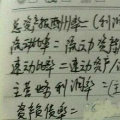 总资产报酬率=(利润
流动比率=流动资产
速动比率=速动资产/
主营 利润率=(主
资产负债率=